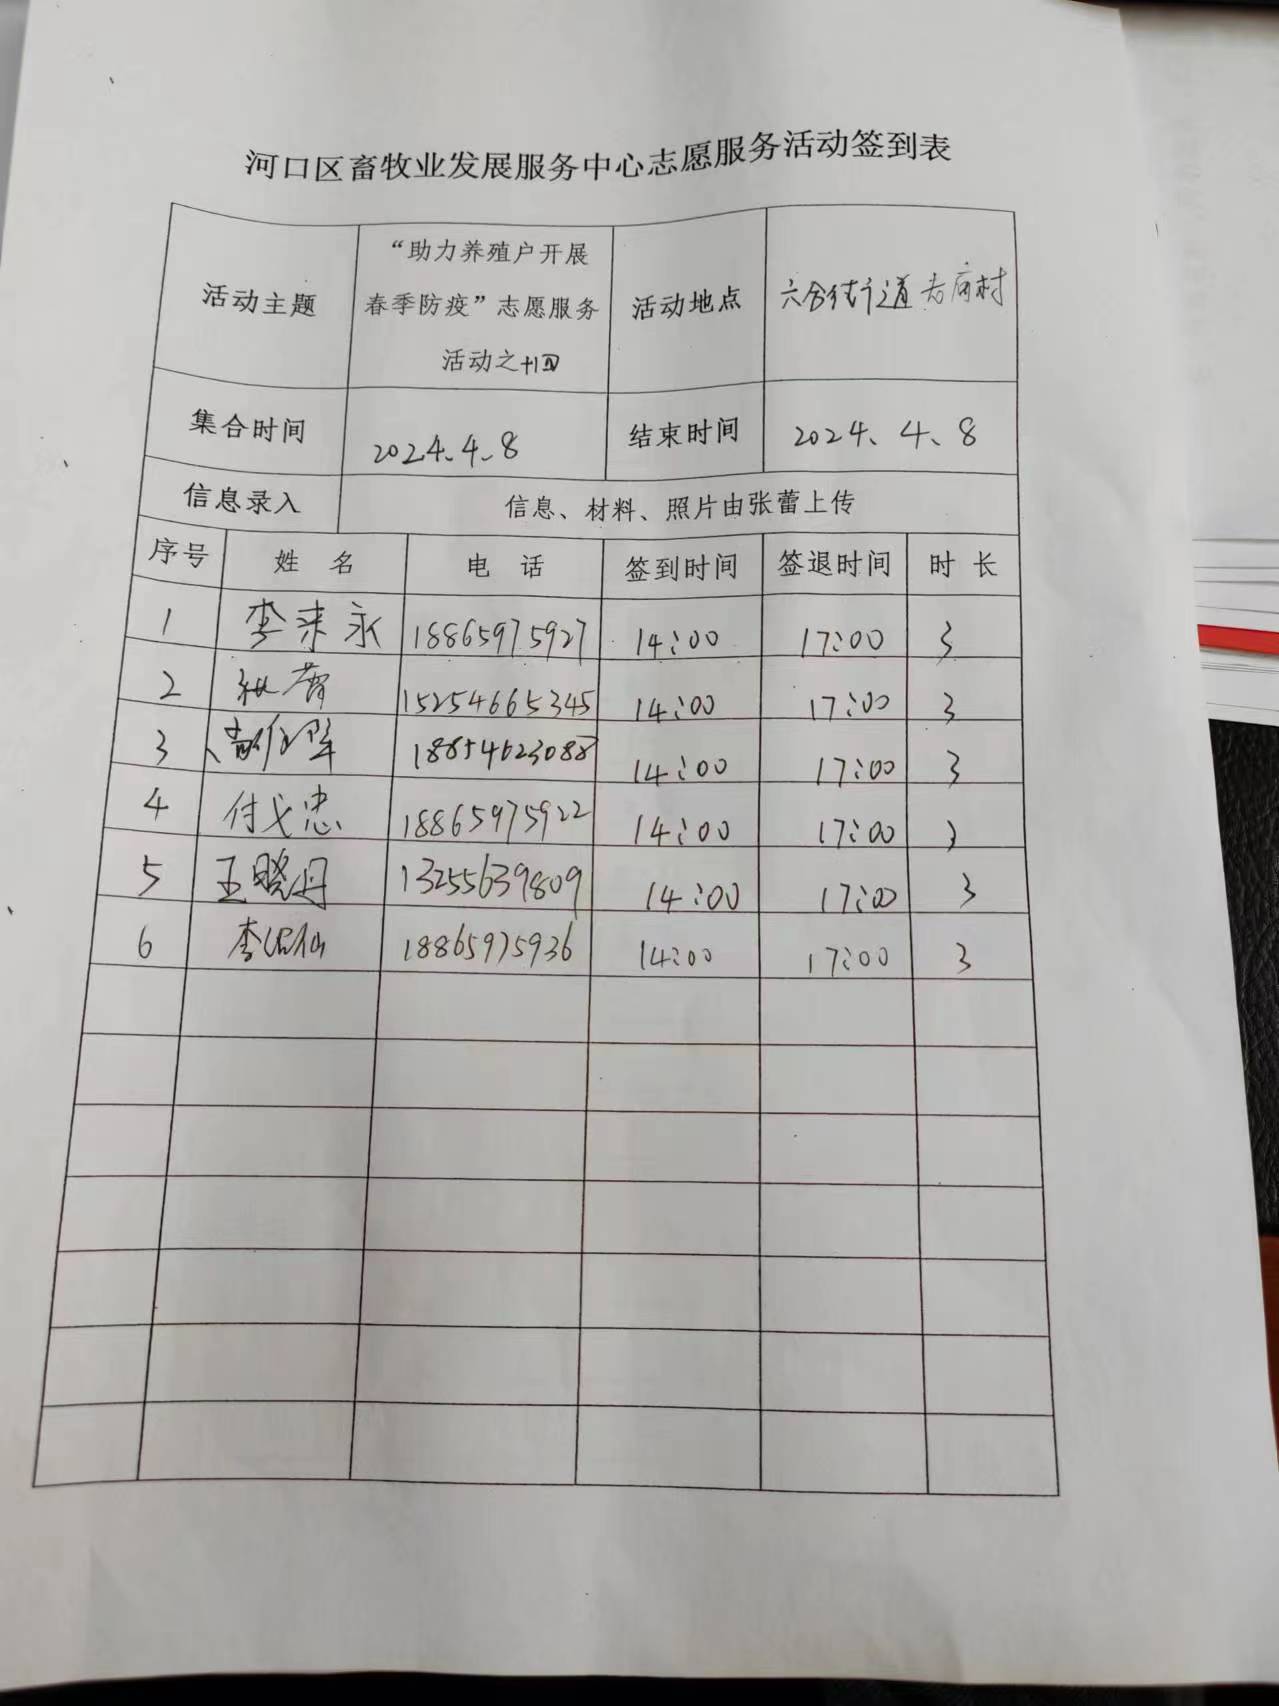 河口区畜牧业发展服务中心志愿服务活动签到表
活动主题
“助力养殖户开展
春季防疫”志愿服务
活动之十四
活动地点
六合街道老庙村
集合时间 2024.4.8 结束时间 2024、4、8
信息录入 信息、材料、照片由张蕾上传
序号 姓 名 电 话 签到时间 签退时间 时 长
1 李来永 18865975927 14:00 17:00 3
2 15254665345 14:00 17:00 3
3 18854623088 14:00 17:00 3
4 付戈忠 18865975922 14:00 17:00 3
5 王晓丹 13255639809 14:00 17:00 3
6 李 仙 18865975936 14:00 17:00 3